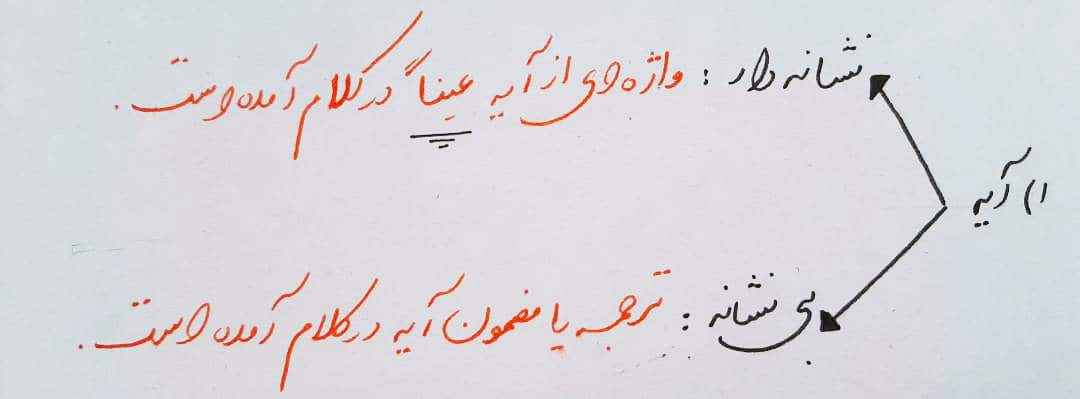 نشانه دار : واژه ای از آیه عیناً در کلام آمده است .
۱) آیه
بی نشانه : ترجمه یا مضمون آیه در کلام آمده است .